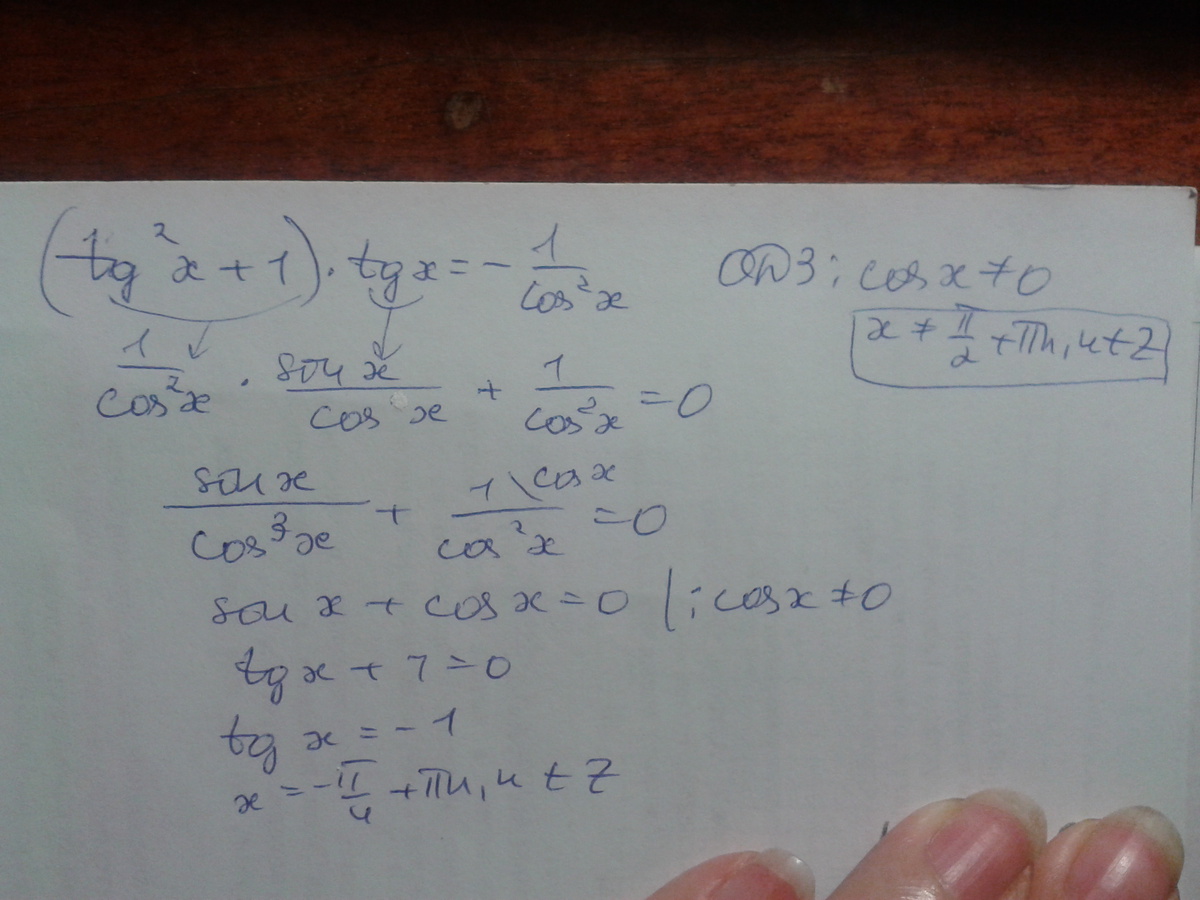 (tg²x + 1) · tg x = - 1/cos²x
ОДЗ: cos x ≠ 0
x ≠ π/2 + πn, n ∈ Z
1/cos²x · sin x/cos x + 1/cos²x = 0
sin x/cos³x + 1\cos x/cos²x = 0
sin x + cos x = 0 |: cos x ≠ 0
tg x + 1 = 0
tg x = -1
x = -π/4 + πn, n ∈ Z